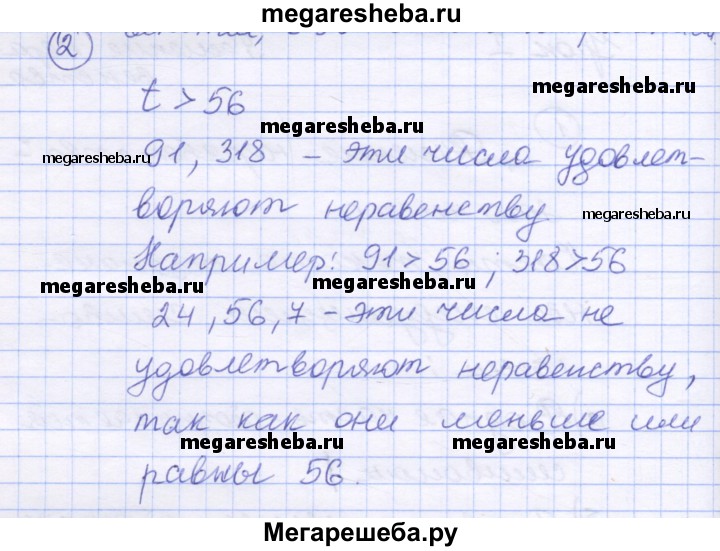 megaresheba.ru
2
t > 56
megaresheba.ru
megaresheba.ru
91, 318 - эти числа удовлет-
воряют неравенству
megaresheba.ru
Например: 91 > 56; 318 > 56
megaresheba.ru
megaresheba.ru
24, 56, 7 - эти числа не
удовлетворяют неравенству,
так как они меньше или
megaresheba.ru
megaresheba.ru
равны 56.
Мегарешеба.ру